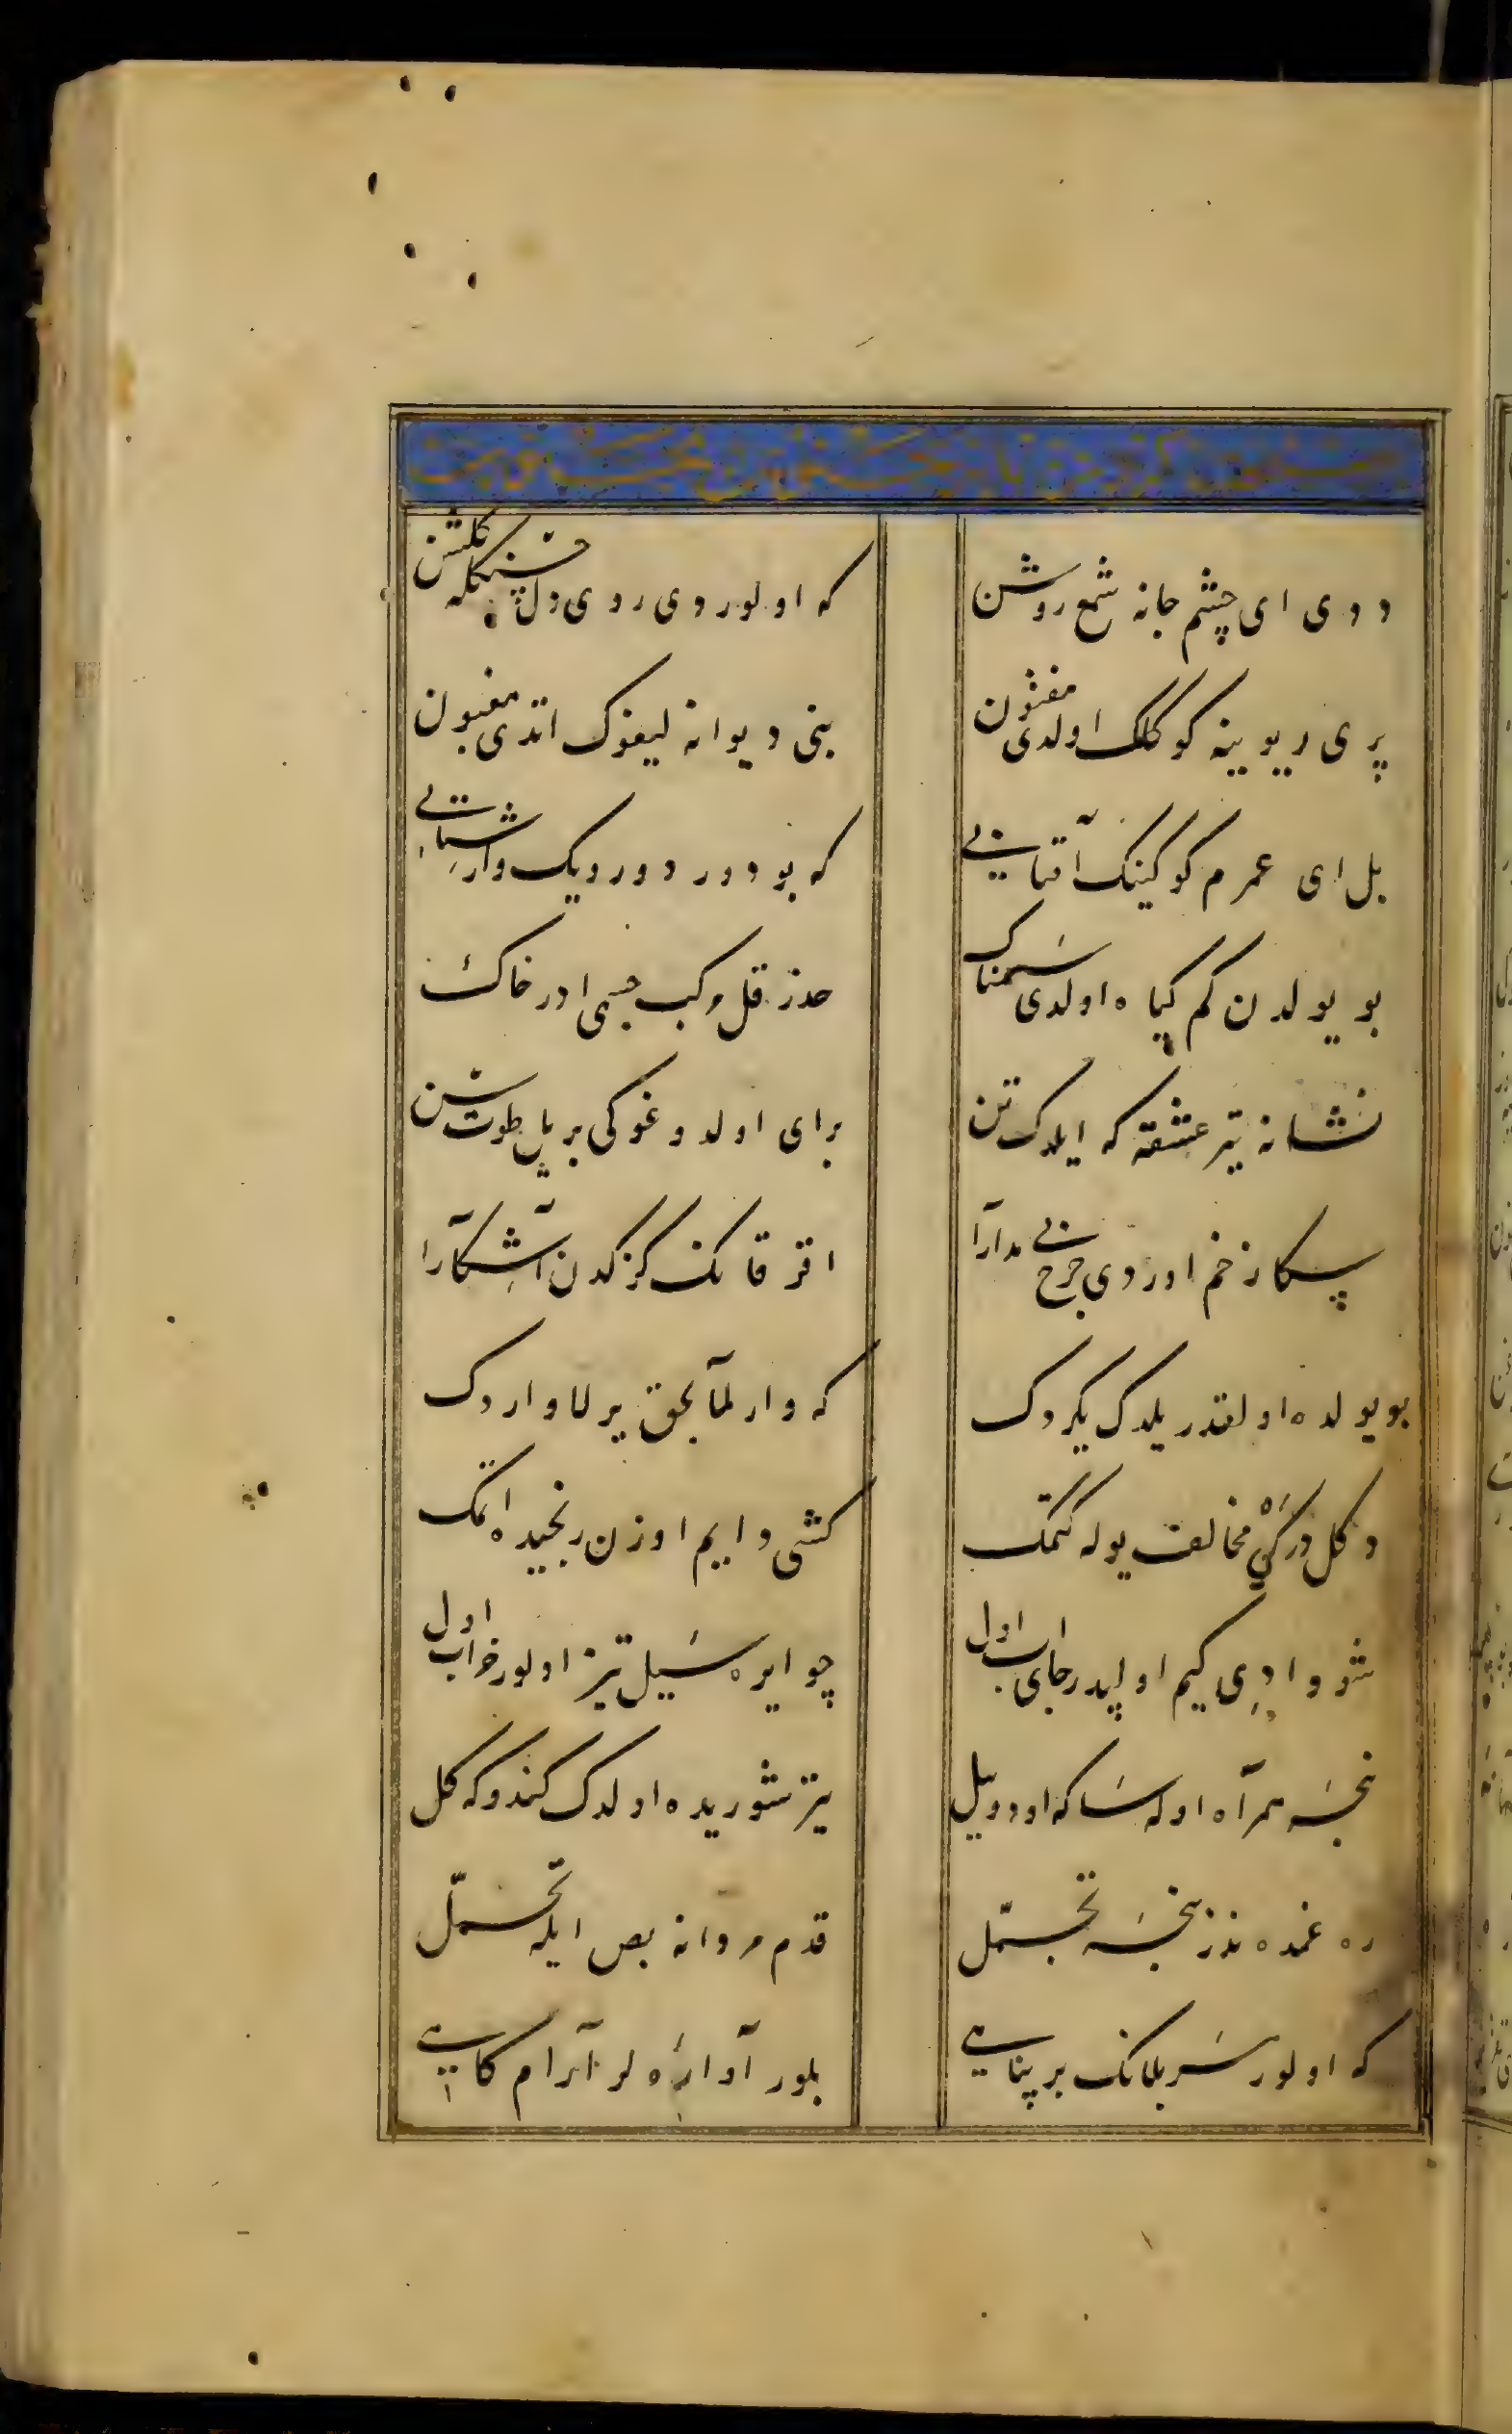 ددی ای چشم جانه شمع روشن
که اولوردی روی دل حسنکله کلشن
پری ریوینه کوکلک اولدی مفتون
بنی دیوانه لیغوک اتدی مغبون
بل ای عمرم کوکینک آفتابی
که بو دور دورویک وار شتابی
بو یولدن کم کیاه اولدی سمناک
حذر قل مرکب جسمی ادر خاک
نشانه تیر عشقه که ایلدک تن
برای اولدوغوکی بر پای طوت سن
سکا زخم اوردی چرخ بی مدارا
اقر قانک کزکدن آشکارا
بو یولده اولقدر یلدک یکردک
که وارلمآیجق یرلا واردک
دکل درکن مخالف یوله کتمک
کشی دایم اوزن رنجیده اتمک
شو وادی کیم اولیدر جای اول
چو ایره سیل تیز اولور خراب اول
نجسه همرآه اوله سا که اودویل
یتر شوریده اولدک کندوکه کل
ره غمده ندر نجسه تجمل
قدم مردانه بص ایله تحمل
که اولور سر بلانک بر پناهی
بلور آواره لر آرام کاهی